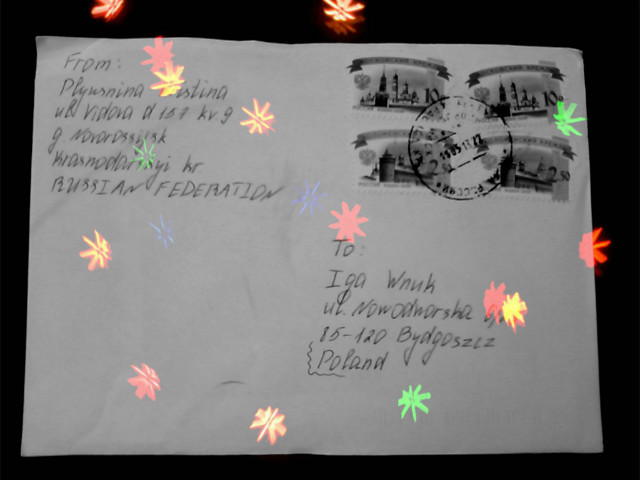 From:
Plyusnina
ul. Vidova d 157 kv 9
g. Novorossiysk
Krasnodarskyi kr
RUSSIAN FEDERATION
10
10
2.50
РОССИЯ
To:
Iga Wnuk
ul. Nowodworska
85-120 Bydgoszcz
Poland